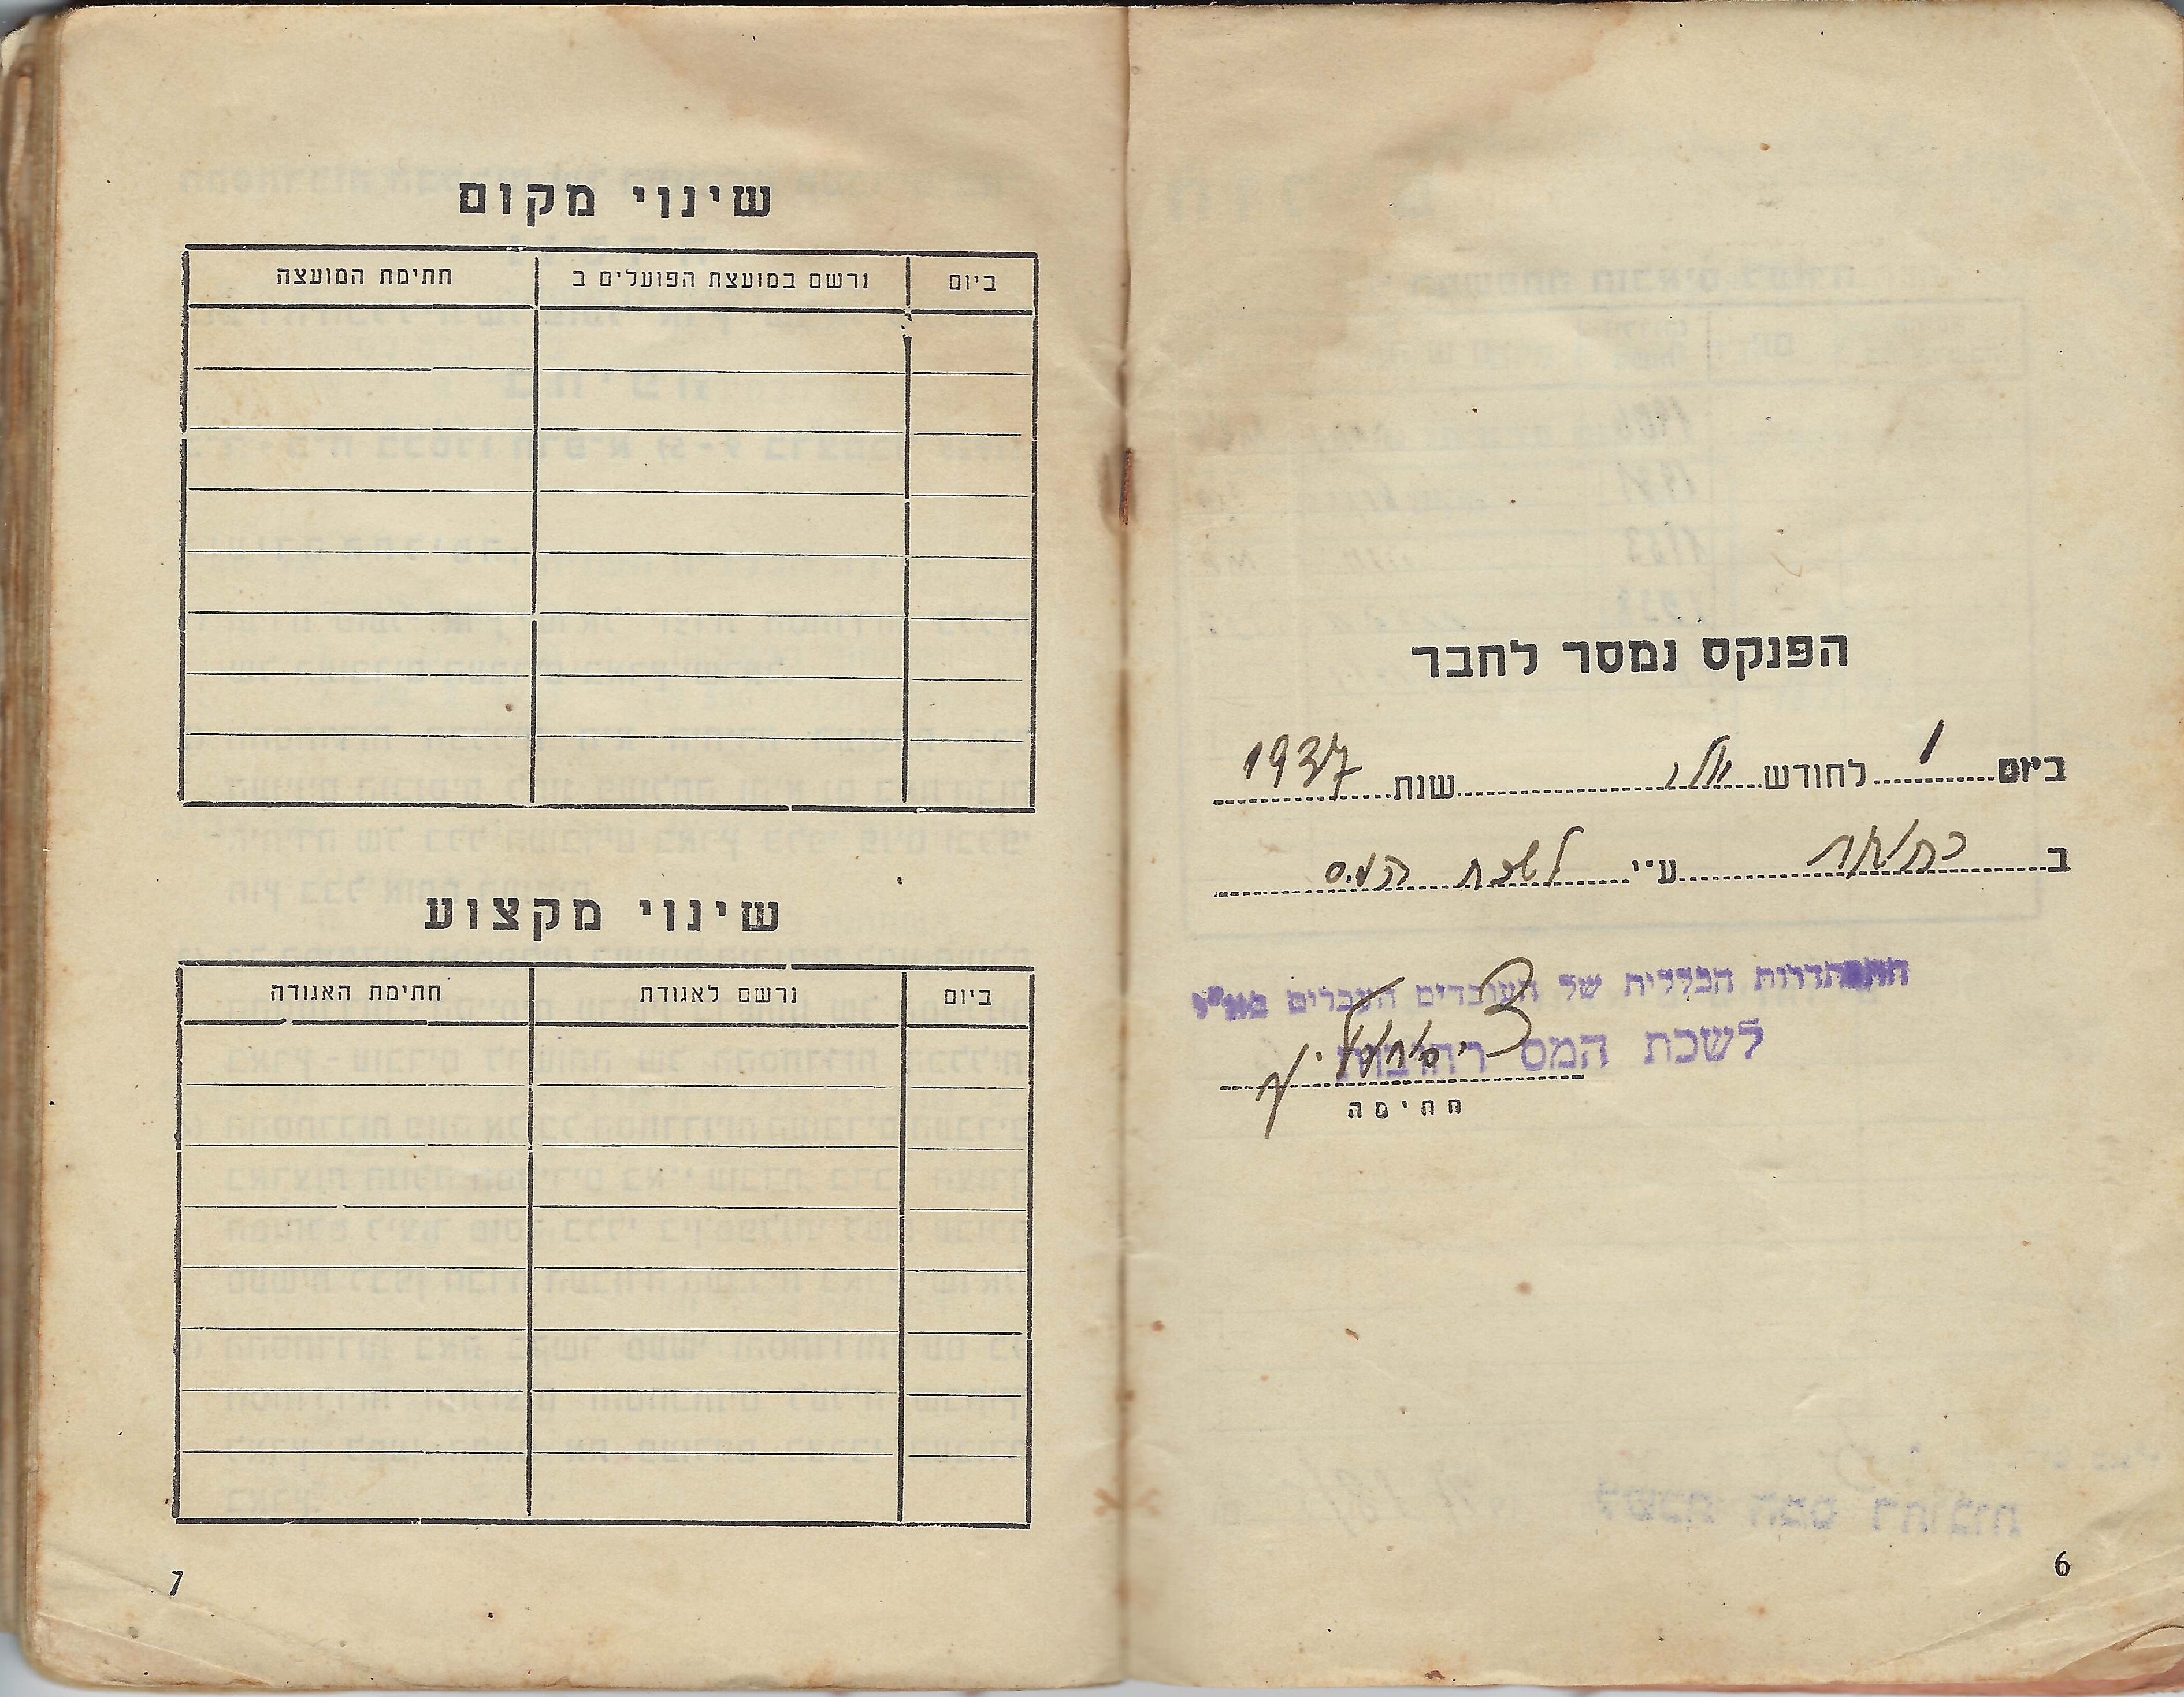 הפנקס נמסר לחבר
ביום 1 לחודש יולי שנת 1937
ב רחובות ע״י לשכת המס
ההסתדרות הכללית של העובדים העברים בא״י
לשכת המס רחובות
חתימה
6
שינוי מקום
ביום נרשם במועצת הפועלים ב חתימת המועצה
שינוי מקצוע
ביום נרשם לאגודת חתימת האגודה
7